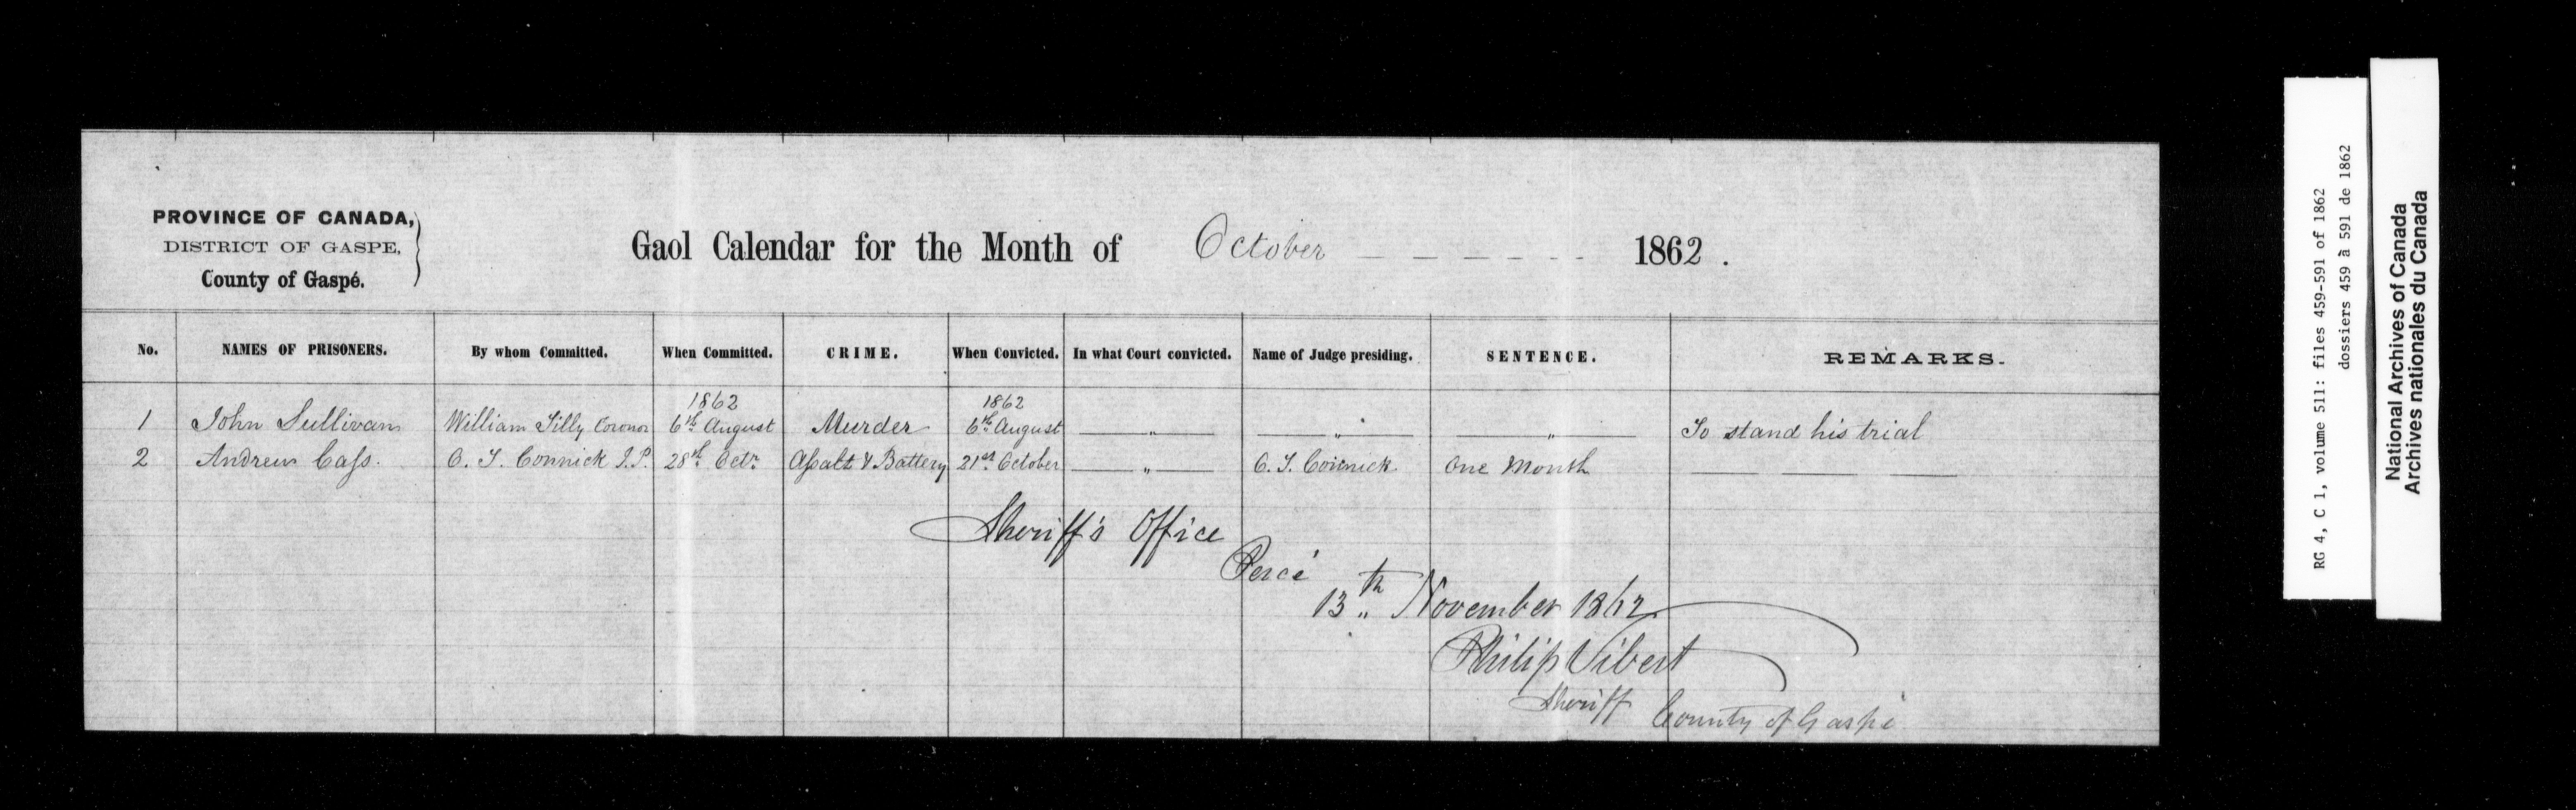 PROVINCE OF CANADA,
DISTRICT OF GASPE,
County of Gaspé.
Gaol Calendar for the Month of October 1862.
No. NAMES OF PRISONERS. By whom Committed. When Committed. CRIME. When Convicted. In what Court convicted. Name of Judge presiding. SENTENCE. REMARKS.
1862 1862
1 John Sullivan William Tilly Coronor 6th August Murder 6th August — " — — " — — " — To stand his trial
2 Andrew Cass. C. T. Connick J.P. 28th Octr Assalt & Battery 21st October — " — C. T. Connick One Month — — —
Sheriff's Office
Percé
13th November 1862
Philip Vibert
Sheriff County of Gaspé
RG 4, C 1, volume 511: files 459-591 of 1862
dossiers 459 à 591 de 1862
National Archives of Canada
Archives nationales du Canada